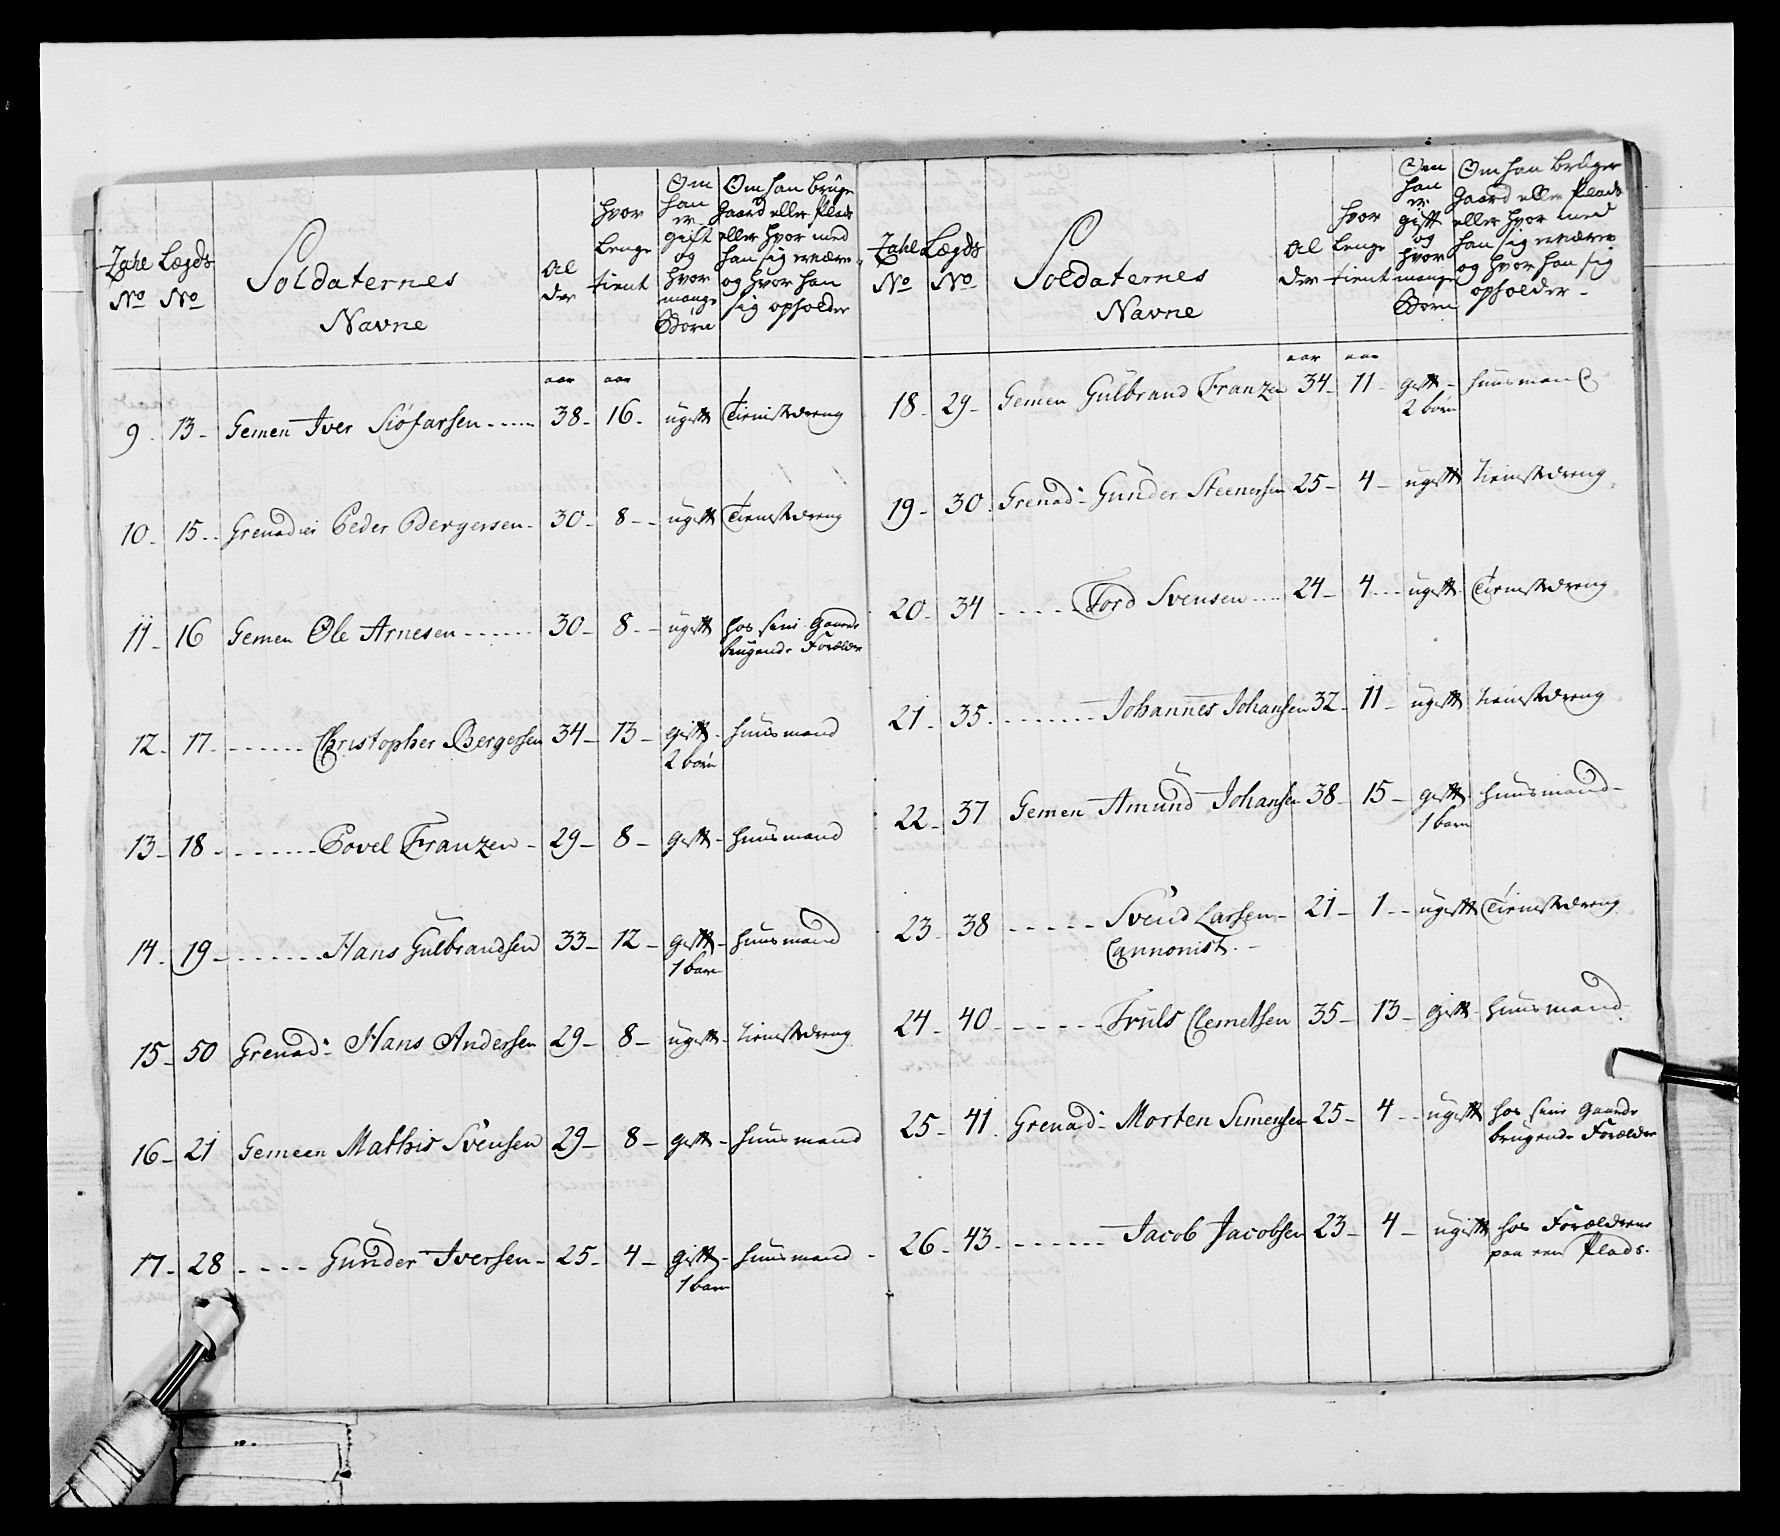 Zahl No
Lægds No
Soldaternes Navne
Al der
hvor lenge tient
Om han er gift og hvor mange Børn
Om han bruger gaard eller Plads eller hvor med han sig ernærer og hvor han sig opholder
aar aar
9. 13 - Gemen Iver Siøfarsen ...... 38 - 16 - ugift Tienistdreng
10 - 15 - Grenadier Peder Bergersen - 30 - 8 - ugift Tienistdreng
11 - 16 Gemen Ole Arnesen ...... 30 - 8 - ugift hos sine gaard
brugende Forældre
12 - 17 - ...... Christopher Bergersen 34 - 13 - gift - huusmand
2 børn
13 - 18 - ...... Povel Franzen - 29 - 8 - gift - huusmand
14 - 19 - ...... Hans Gulbrandsen 33 - 12 - gift - huusmand
1 barn
15 - 50 Grenad: Hans Andersen 29 - 8 - ugift - tienistdreng
16 - 21 Gemeen Mathis Svensen 29 - 8 - gift - huusmand
17 - 28 .... Gunder Iversen - 25 - 4 - gift - huusmand -
1 barn
Zahl No
Lægds No
Soldaternes Navne
Al der
hvor lenge tient
Om han er gift og hvor mange Børn
Om han bruger gaard eller Plads eller hvor med han sig ernærer og hvor han sig opholder -
aar aar
18 - 29 - Gemen Gulbrand Franzen 34 - 11 - gift - huusmand
2 børn
19 - 30 . Grenad: Gunder Steenersen 25 - 4 - ugift tienistdreng
20 - 34 ..... Tord Svensen .... 24 - 4 - ugift Tienistdreng
21 - 35 ....... Johannes Johansen 32 - 11 - ugift tienistdreng
22 - 37 Gemen Amund Johansen 38 - 15 - gift huusmand -
1 barn
23 - 38 ..... Svend Larsen - 21 - 1 - ugift Tienistdreng
Cannonist. -
24 - 40 ...... Truls Clemetsen 35 - 13 - gift huusmand
25 - 41 . Grenad: Morten Simensen 25 - 4 - ugift hos sine gaard
brugende Forældre
26 - 43 ...... Jacob Jacobsen 23 - 4 - ugift hos Forældrene
paa een Plads.